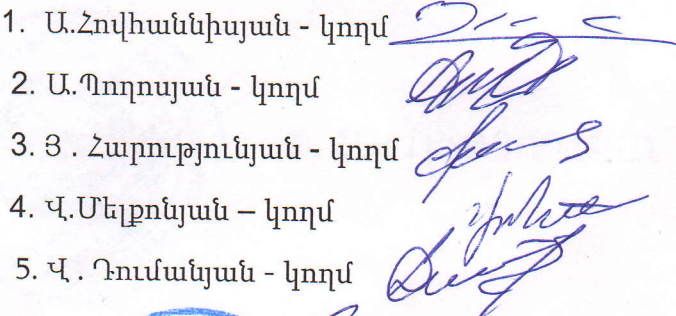 1. Ա.Հովհաննիսյան - կողմ
2. Ա.Պողոսյան - կողմ
3. Յ . Հարությունյան - կողմ
4. Վ.Մելքոնյան – կողմ
5. Վ . Դումանյան - կողմ